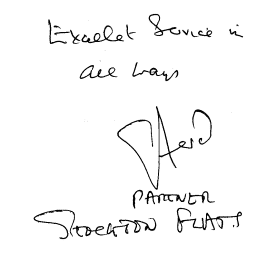 Excellet Service in
all ways
PARTNER
STOCKTON FLATS